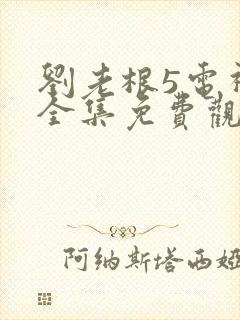 劉老根5電
全集免費觀
阿纳斯塔西娅